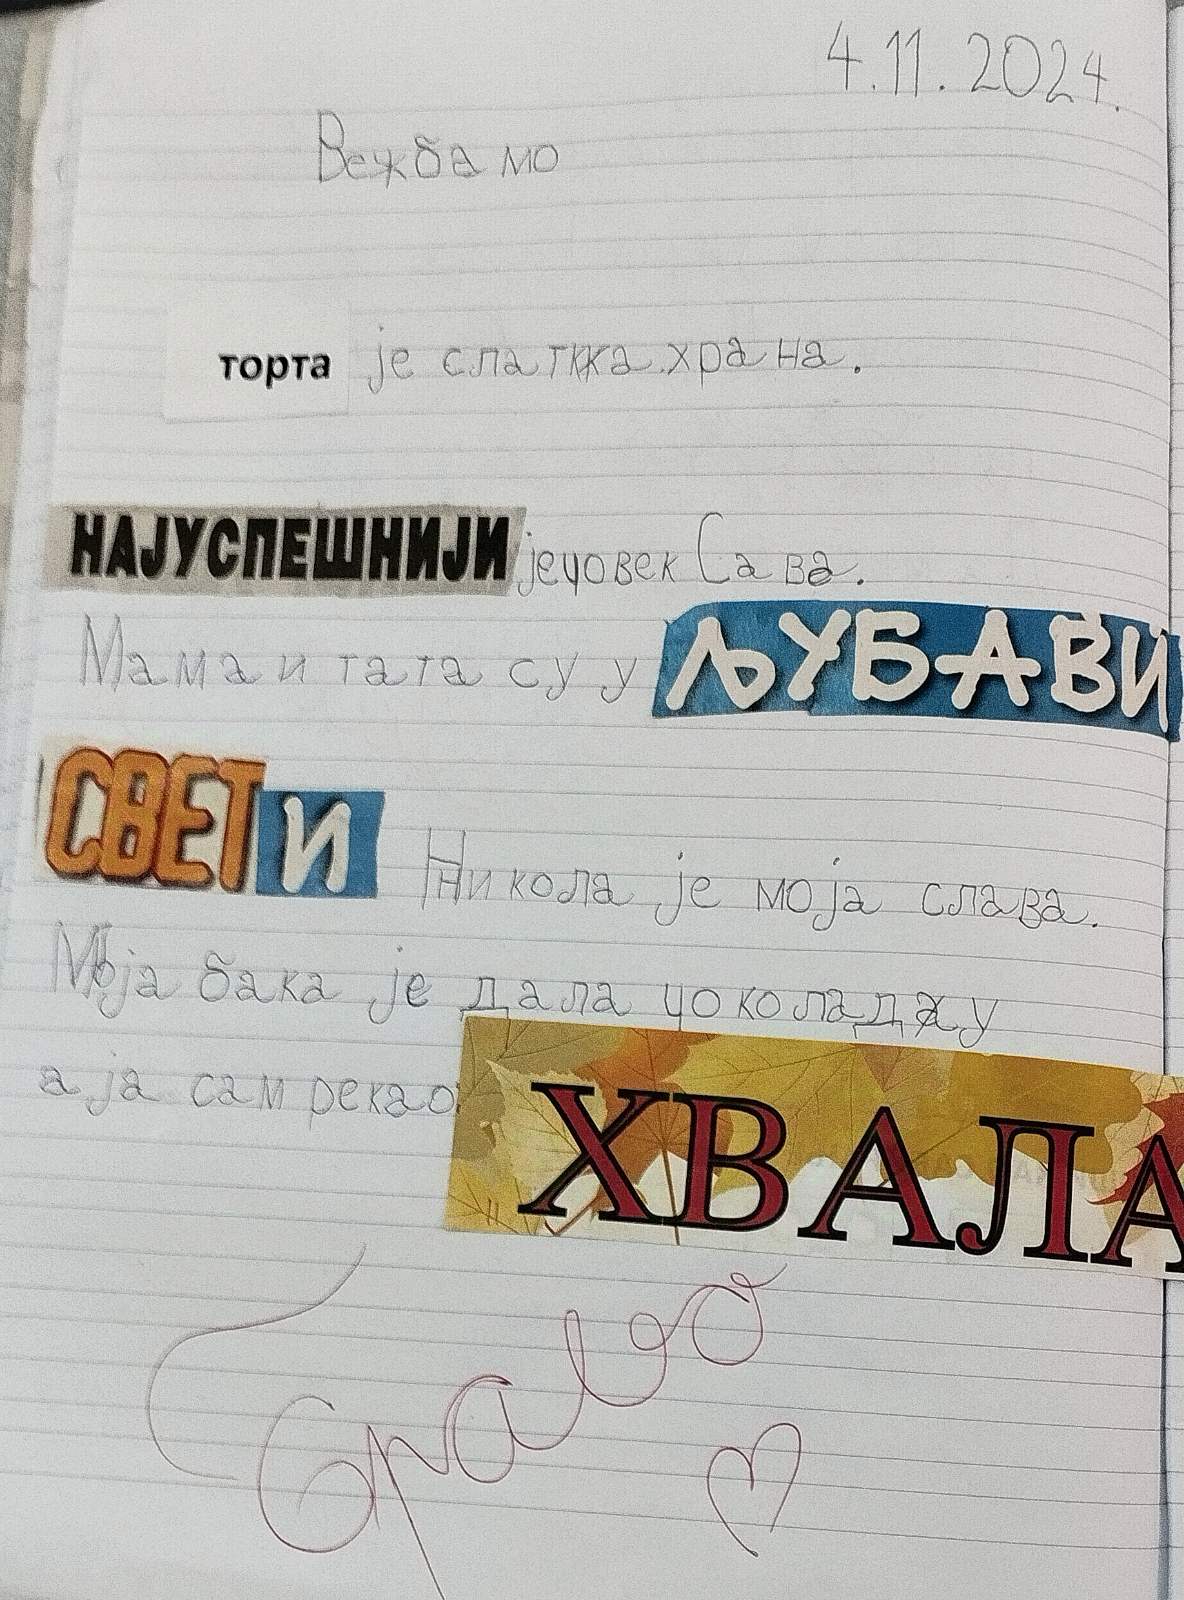 4.11.2024.
Вежбамо
торта је слаткка храна.
НАЈУСПЕШНИЈИ је човек Сава.
Мама и тата су у ЉУБАВИ
СВЕТИ Никола је моја слава.
Моја бака је дала чоколаду
а ја сам рекао: ХВАЛА
Браво